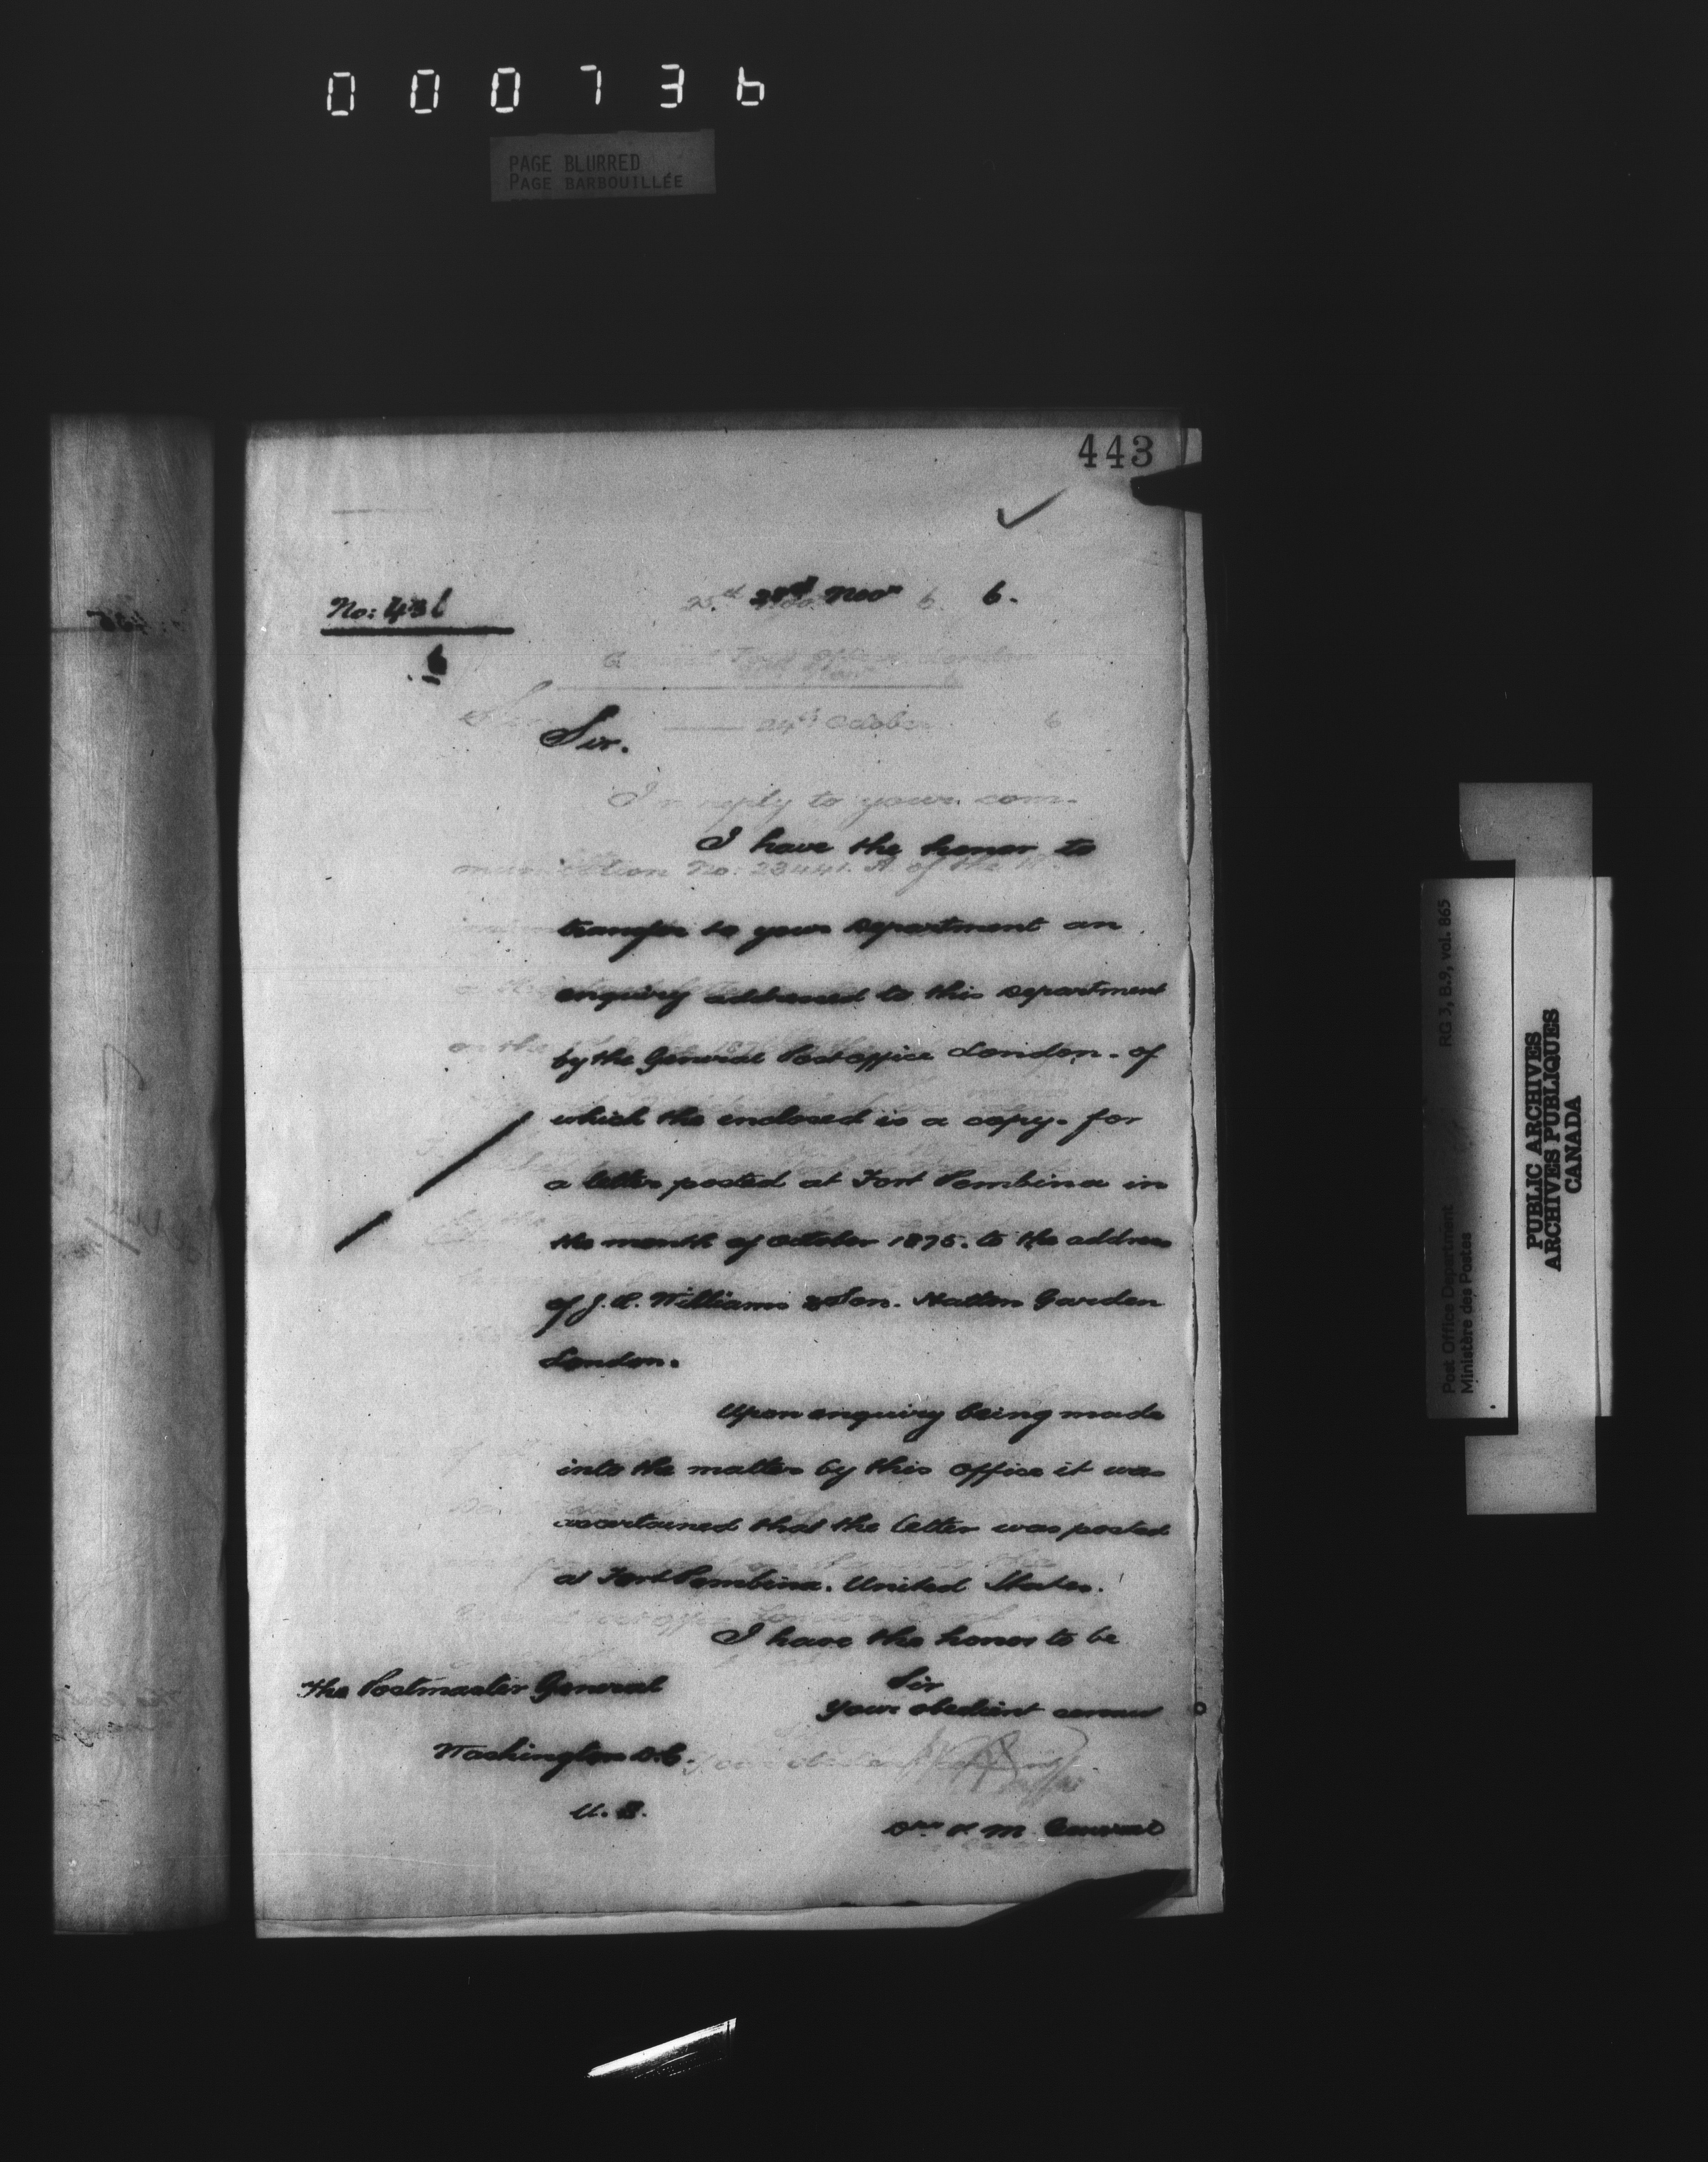 000736
PAGE BLURRED
PAGE BARBOUILLÉE
443
No: 436
6
Novr 6.
Sir.
In reply to your com-
I have the honor to
munication No: 23441. A of the
transfer to your Department an
enquiry addressed to this Department
by the General Post office London. of
which the enclosed is a copy. for
a letter posted at Fort Pembina in
the month of October 1875. to the address
of J. R. Williams & Son. Hatton Garden
London.
Upon enquiry being made
into the matter by this office it was
ascertained that the letter was posted
at Fort Pembina. United States.
I have the honor to be
Sir
Your obedient servant
The Postmaster General
Washington D.C.
U. S.
P. M. General
RG 3, B.9, vol. 865
Post Office Department
Ministère des Postes
PUBLIC ARCHIVES
ARCHIVES PUBLIQUES
CANADA